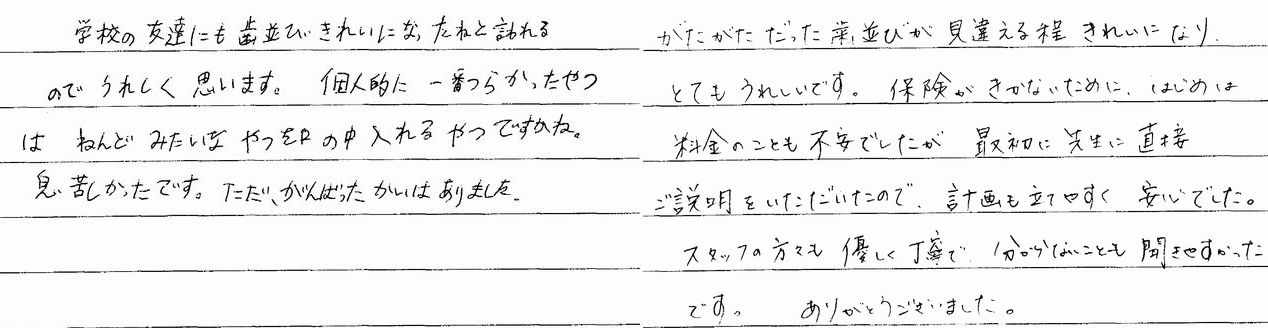 学校の友達にも歯並びきれいになったねと言われる
のでうれしく思います。 個人的に一番つらかったやつ
は ねんどみたいなやつを口の中入れるやつですかね。
息苦しかったです。ただ、がんばったかいはありました。
がたがただった歯並びが見違える程きれいになり、
とてもうれしいです。保険がきかないために、はじめは
料金のことも不安でしたが 最初に先生に直接
ご説明をいただいたので、計画も立てやすく 安心でした。
スタッフの方々も優しく丁寧で、分からないことも聞きやすかった
です。 ありがとうございました。